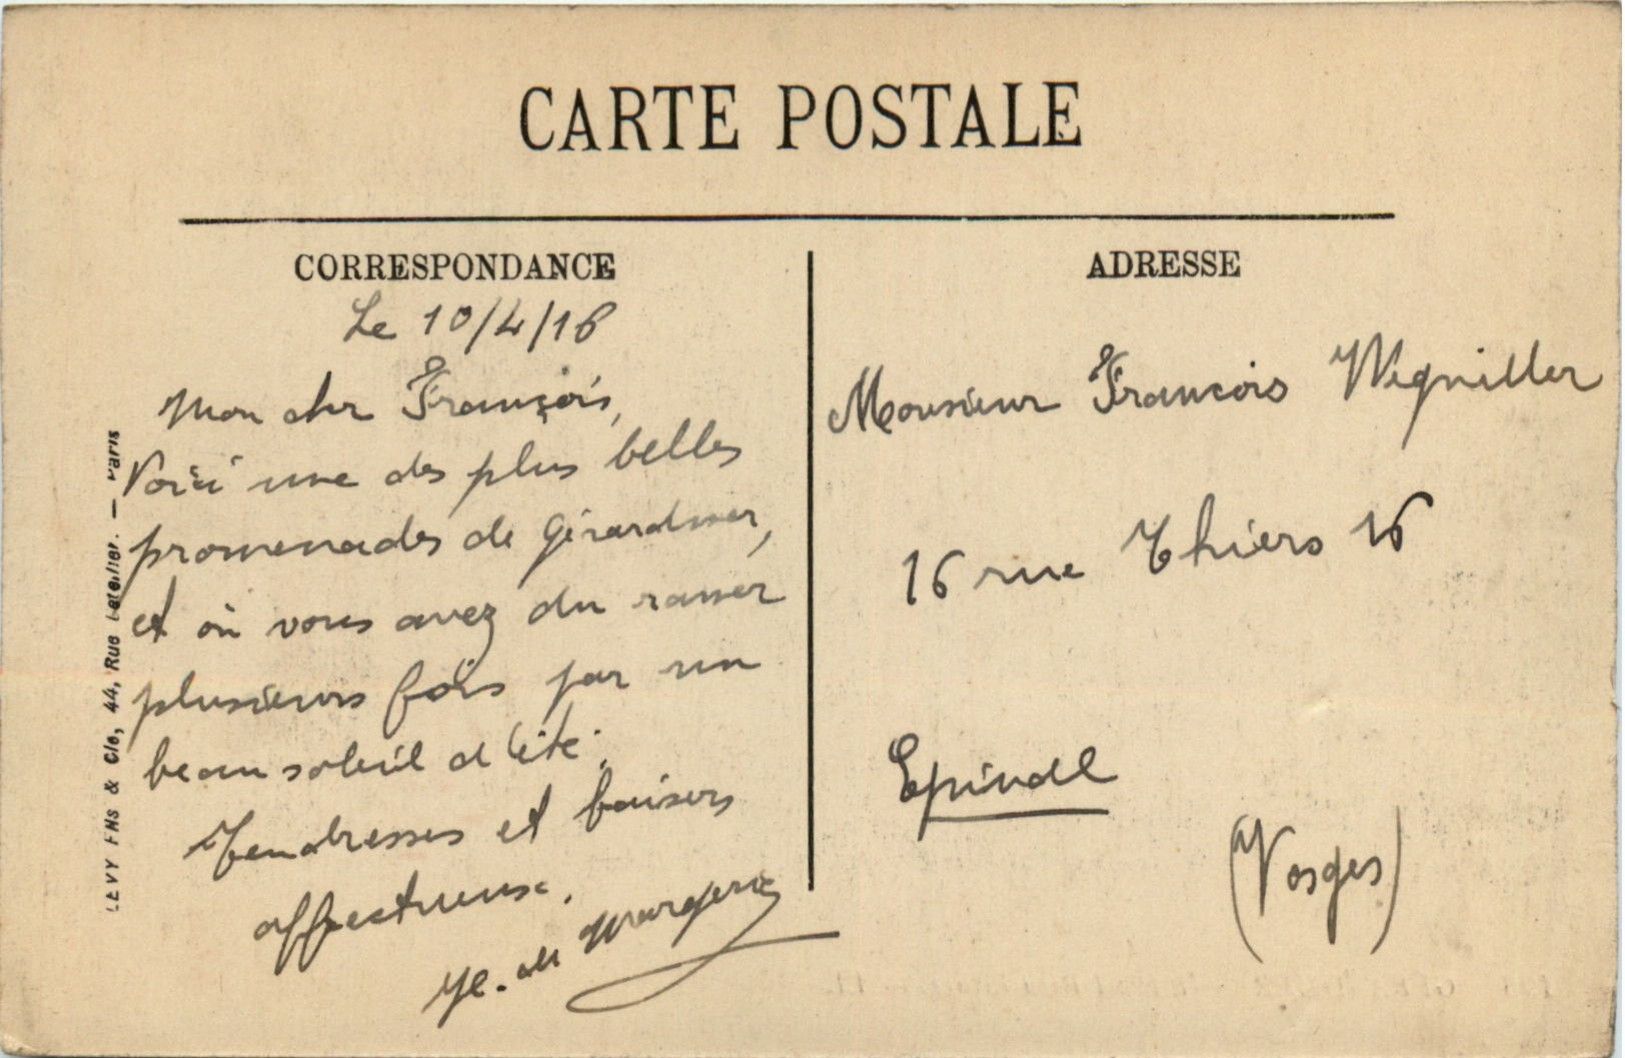 CARTE POSTALE
CORRESPONDANCE
Le 10/4/16
Mon cher François,
Voici une des plus belles
promenades de Gérardmer,
et où vous avez du
plusieurs fois par un
beau soleil d'été.
Tendresses et baisers
affectueux.
de Margerie
LEVY FILS & Cie, 44, Rue Letellier. — Paris
ADRESSE
Monsieur François
16 rue Thiers 16
Epinal
(Vosges)